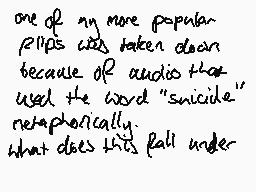 one of my more popular
flips was taken down
because of audio that
used the word "suicide"
metaphorically.
what does this fall under